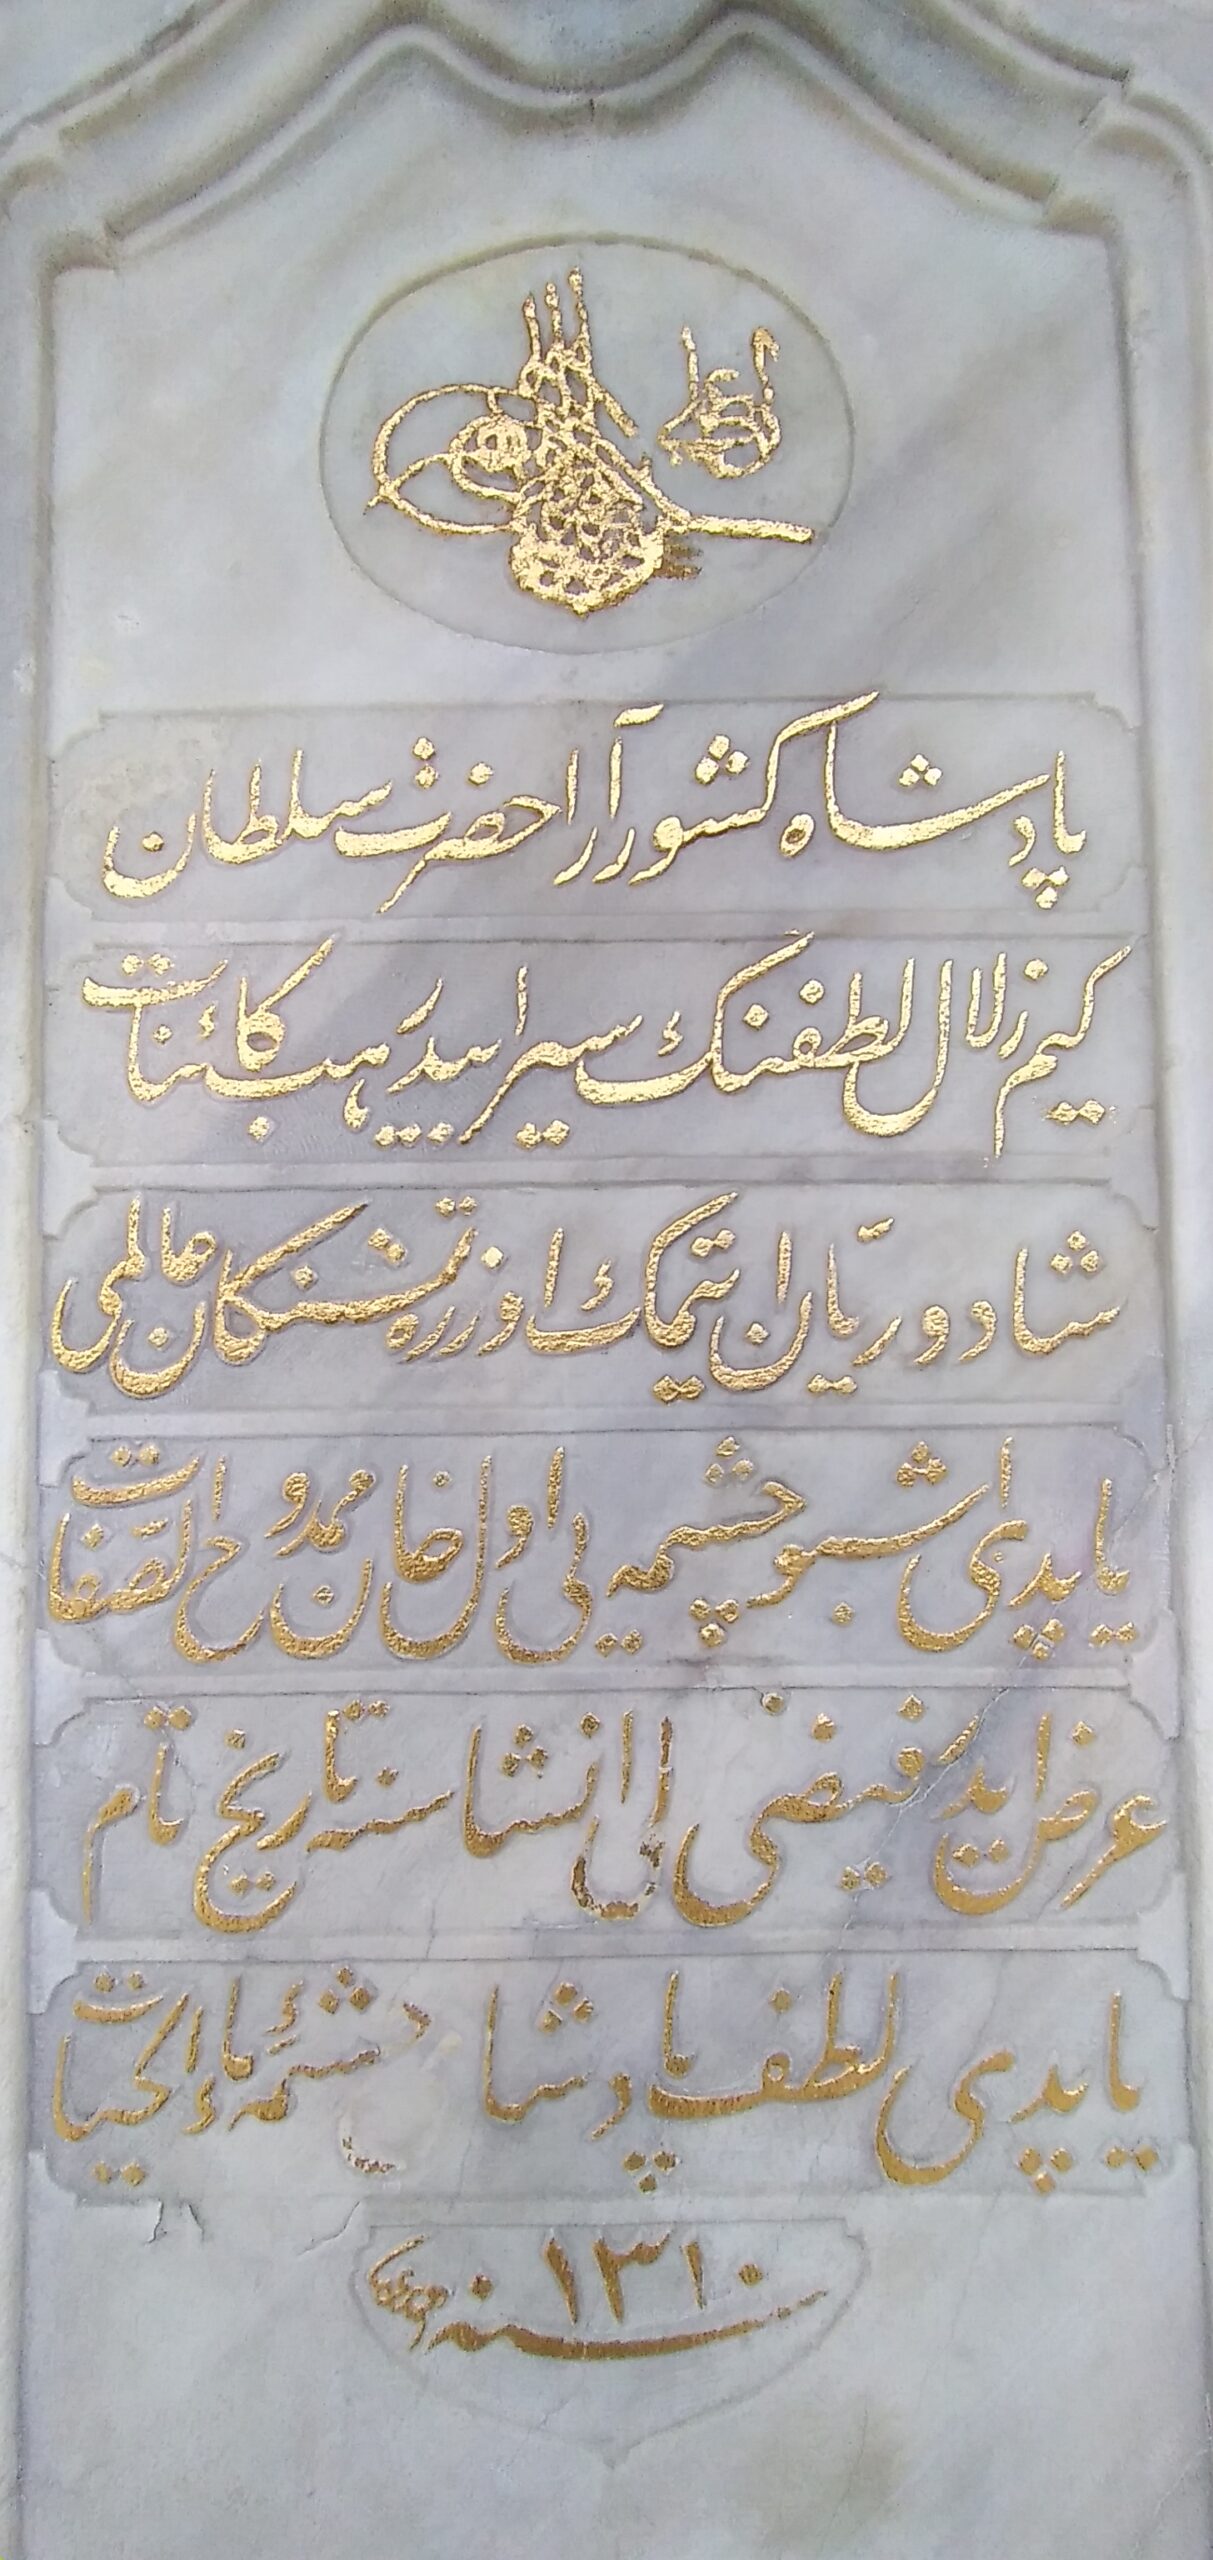 الغازی
پادشاه كشورآرا حضرت سلطان
كیم زلال لطفنك سیرابیدر هب كائنات
شاد و ریّان ایتمك اوزره تشنكان عالمی
یاپدی اشبو چشمه یی اول خان ممدوح الصّفات
عرض ایدر فیضی ایكی انشاسنه تاریخ تام
یاپدی لطف پادشا چشمهٔ ماء الحیات
سنه ١٣١٠